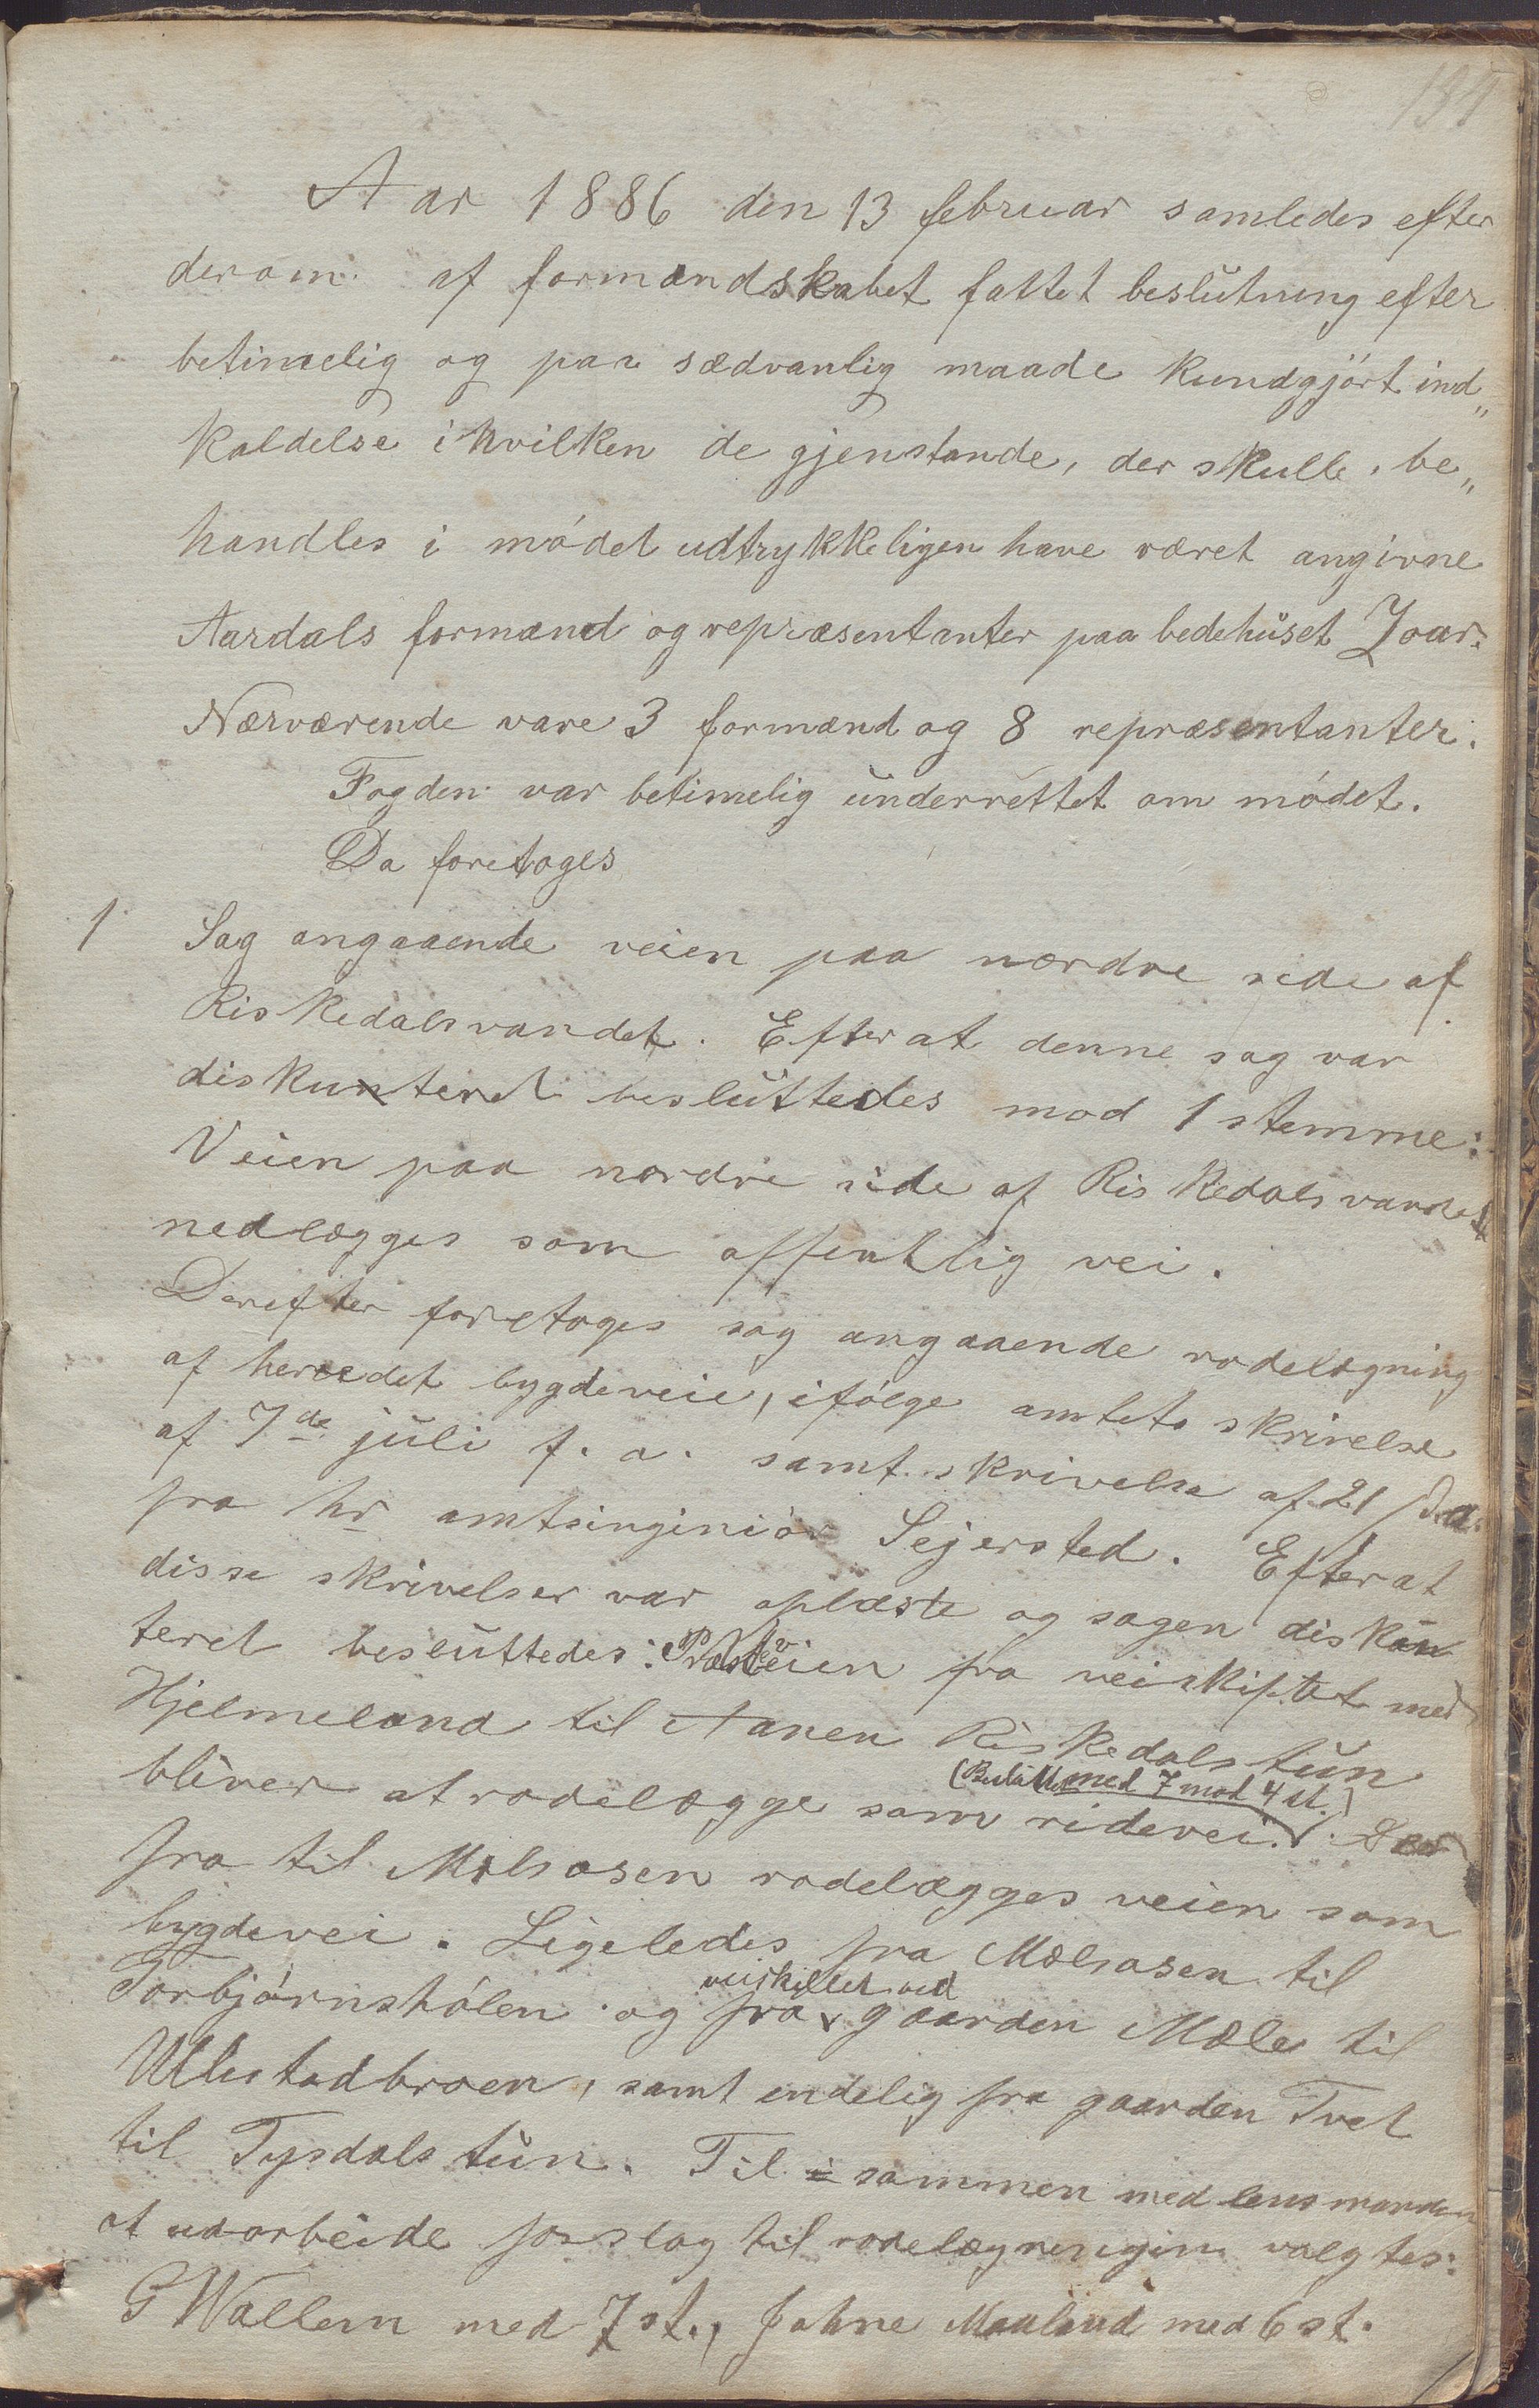 Aar 1886 den 13 februar samledes efter
derom af formandskabet fattet beslutning efter
betimelig og paa sædvanlig maade kundgjört ind„
kaldelse i hvilken de gjenstande, der skulle be„
handles i mödet udtrykkeligen have været angivne
Aardals formænd og repræsentanter paa bedehuset Zoar.
Nærværende vare 3 formænd og 8 repræsentanter.
Fogden var betimelig underrettet om mödet.
Da foretoges
1 Sag angaaende veien paa nordre side af
Riskedalsvandet. Efterat denne sag var
diskuteret besluttedes mod 1 stemme:
Veien paa nordre side af Riskedalsvandet
nedlægges som offentlig vei.
Derefter foretoges sag angaaende rodelægning
af herredet bygdeveie, ifölge amtets skrivelse
af 7de juli f. a. samt skrivelse af 21 s.a.
fra hr amtsinginiör Sejersted. Efterat
disse skrivelser var oplæste og sagen disku
teret besluttedes: Postveien fra veiskiftet med
Hjelmeland til Aanen Riskedals tun
(Besluttet med 7 mod 4 st.)
bliver at rodelægge som ridevei. Der
fra til Mælsosen rodelægges veien som
bygdevei. Ligeledes fra Mælsosen til
veiskillet ved
Torbjörnshölen og fra gaarden Mæle til
Ullestadbroen, samt endelig fra gaarden Tvet
til Tysdals tun. Til sammen med lensmanden
at udarbeide forslag til rodelægningen valgtes:
G Wallem med 7 st., Johne Mauland med 6 st.